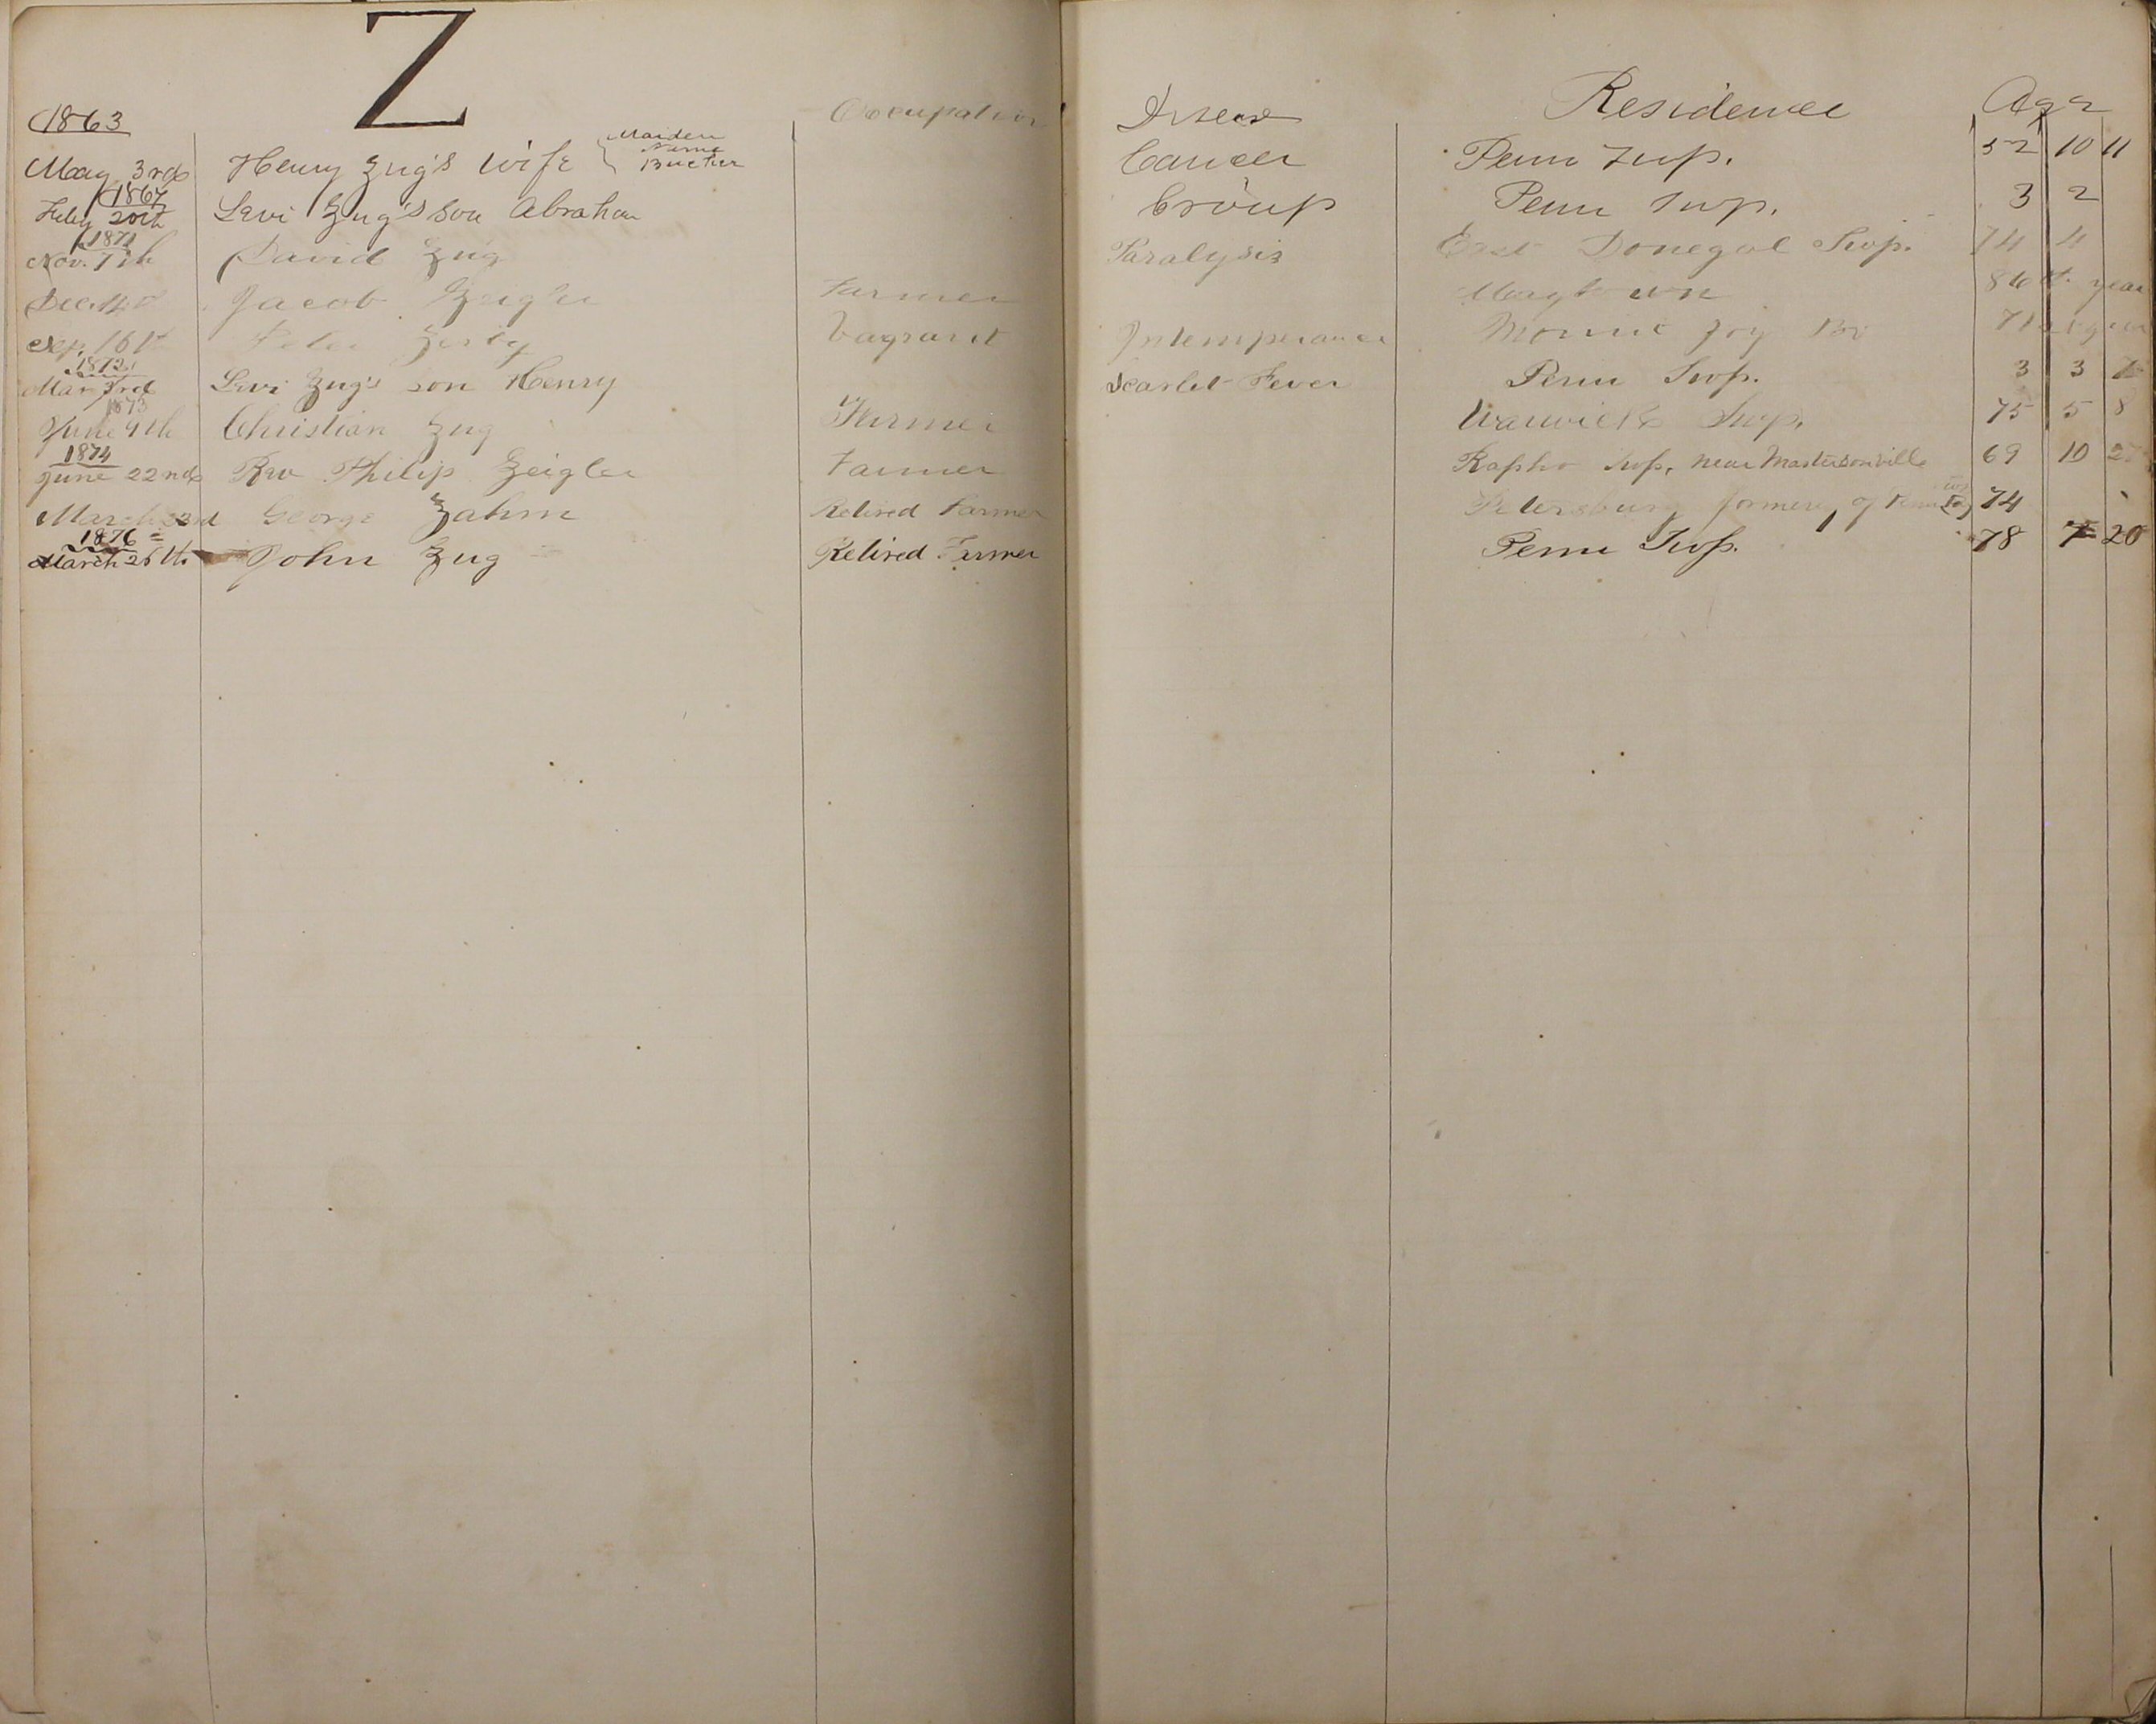 Z
1863 Occupation Disease Residence Age
May 3rd Henry Zug's wife { Maiden Name Bucher Cancer Penn Twp. 52 10 11
1867
July 20th Levi Zug's son Abraham Croup Penn Twp. 3 2
1871
Nov. 7th David Zug Paralysis East Donegal Twp. 74 4
Dec. Jacob Zeigler Farmer Maytown year
Sep. 16th Peter Vagrant Intemperance Mount Joy Bo 71
1872
Mar 3rd Levi Zug's son Henry Scarlet Fever Penn Twp. 3 3
1873
June 9th Christian Zug Farmer Warwick Twp. 75 5 8
1874
June 22nd Rev Philip Zeigler Farmer Rapho Twp. near Mastersonville 69 10
March 23rd George Zahm Retired Farmer Petersburg formerly of Penn 74
1876
March 26th John Zug Retired Farmer Penn Twp. 78 7 20